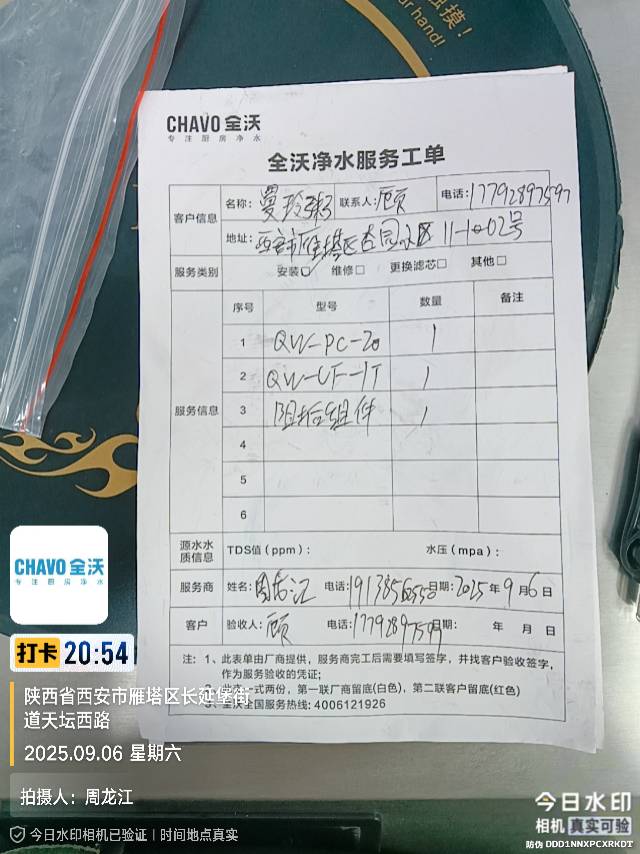 触摸！
ur hand!
CHAVO 全沃
专注厨房净水
全沃净水服务工单
客户信息 名称：曼玲粥 联系人：顾 电话：17792897597
地址：西安市雁塔区杏园小区 11-1-02号
服务类别 安装□ 维修□ 更换滤芯□ 其他□
服务信息 序号 型号 数量 备注
1 QW-PC-20 1
2 QW-UF-1T 1
3 阻垢组件 1
4
5
6
源水水质信息 TDS值（ppm）： 水压（mpa）：
服务商 姓名：周龙江 电话： 日期：2025年9月6日
客户 验收人：顾 电话：17792897597 日期： 年 月 日
注：1、此表单由厂商提供，服务商完工后需要填写签字，并找客户验收签字，
作为服务验收的凭证；
一式两份，第一联厂商留底(白色)，第二联客户留底(红色)
3、全沃全国服务热线：4006121926
CHAVO 全沃
专注厨房净水
打卡 20:54
陕西省西安市雁塔区长延堡街
道天坛西路
2025.09.06 星期六
拍摄人：周龙江
今日水印相机已验证 | 时间地点真实
今日水印
相机 真实可验
防伪 DDD1NNXPCXRKDT